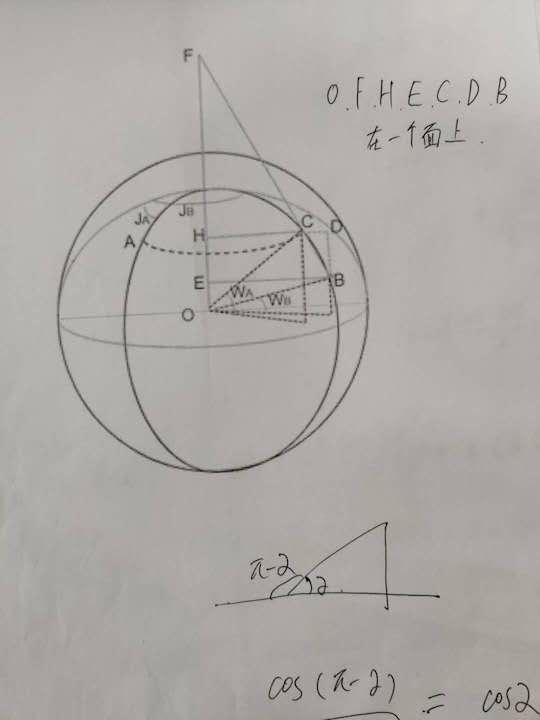 F
O.F.H.E.C.D.B
在一个面上.
JA JB
A H C D
E B
WA WB
O
π-2 2
cos(π-2) = cos2